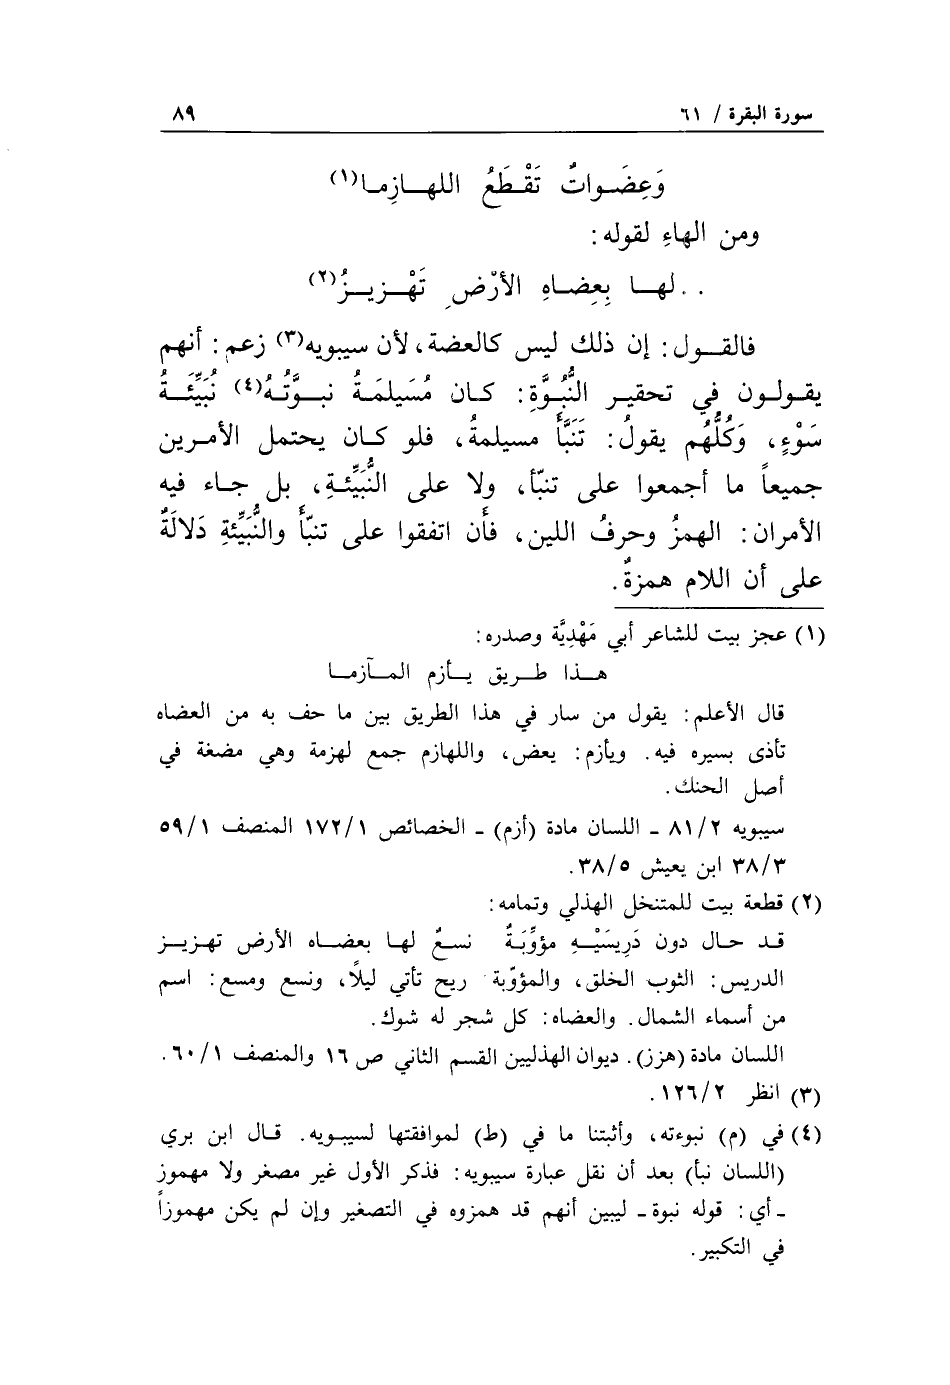 سورة البقرة / ٦١ ٨٩
وَعِضَـواتٌ تَقْـطَعُ اللهـازِمـا(١)
ومن الهاءِ لقوله:
. . لهـا بِعِضـاهِ الأرْضِ تَهْـزِيـزُ(٢)
فالقـول: إن ذلك ليس كالعضة، لأن سيبويه(٣) زعم: أنهم
يقولون في تحقير النُّبُوَّةِ: كان مُسَيلمَةُ نبوَّتُهُ(٤) نُبَيِّئَةُ
سَوْءٍ، وَكُلُّهُم يقولُ: تَنَبَّأَ مسيلمةُ، فلو كان يحتمل الأمرين
جميعاً ما أجمعوا على تنبّأ، ولا على النُّبَيِّئةِ، بل جاء فيه
الأمران: الهمزُ وحرفُ اللين، فأن اتفقوا على تنبّأ والنُّبَيِّئةِ دَلالَةٌ
على أن اللام همزةٌ.
(١) عجز بيت للشاعر أبي مَهْدِيَّة وصدره:
هـذا طـريق يـأزم المـآزمـا
قال الأعلم: يقول من سار في هذا الطريق بين ما حف به من العضاه
تأذى بسيره فيه. ويأزم: يعض، واللهازم جمع لهزمة وهي مضغة في
أصل الحنك.
سيبويه ٨١/٢ - اللسان مادة (أزم) - الخصائص ١٧٢/١ المنصف ٥٩/١
٣٨/٣ ابن يعيش ٣٨/٥.
(٢) قطعة بيت للمتنخل الهذلي وتمامه:
قـد حـال دون دَرِيسَيْـهِ مؤوِّبَةٌ نسعٌ لهـا بعضـاه الأرض تهـزيـز
الدريس: الثوب الخلق، والمؤوّبة ريح تأتي ليلاً، ونسع ومسع: اسم
من أسماء الشمال. والعضاه: كل شجر له شوك.
اللسان مادة (هزز). ديوان الهذليين القسم الثاني ص ١٦ والمنصف ٦٠/١.
(٣) انظر ١٢٦/٢.
(٤) في (م) نبوءته، وأثبتنا ما في (ط) لموافقتها لسيبويه. قال ابن بري
(اللسان نبأ) بعد أن نقل عبارة سيبويه: فذكر الأول غير مصغر ولا مهموز
- أي: قوله نبوة - ليبين أنهم قد همزوه في التصغير وإن لم يكن مهموزاً
في التكبير.